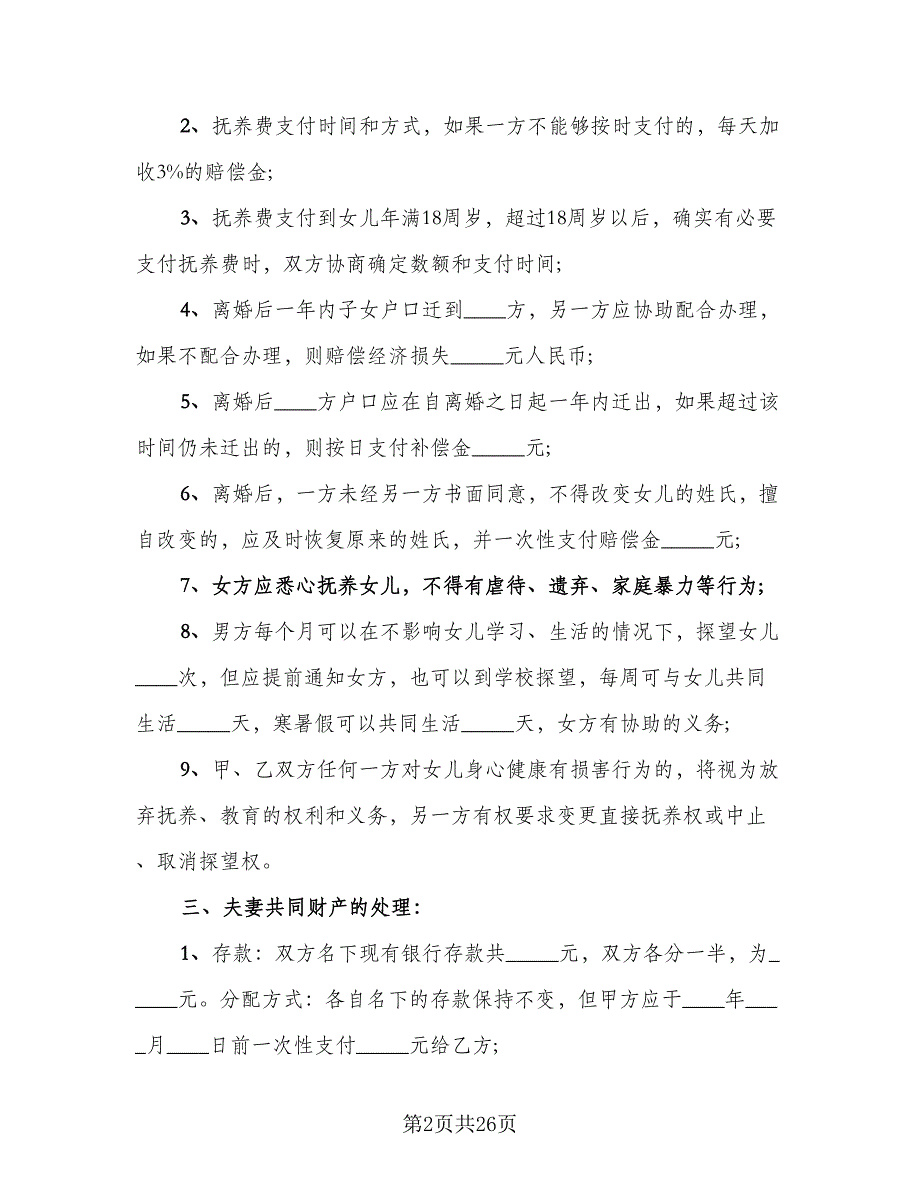 2、抚养费支付时间和方式，如果一方不能够按时支付的，每天加
收3%的赔偿金;
3、抚养费支付到女儿年满18周岁，超过18周岁以后，确实有必要
支付抚养费时，双方协商确定数额和支付时间;
4、离婚后一年内子女户口迁到____方，另一方应协助配合办理，
如果不配合办理，则赔偿经济损失_____元人民币;
5、离婚后____方户口应在自离婚之日起一年内迁出，如果超过该
时间仍未迁出的，则按日支付补偿金_____元;
6、离婚后，一方未经另一方书面同意，不得改变女儿的姓氏，擅
自改变的，应及时恢复原来的姓氏，并一次性支付赔偿金_____元;
7、女方应悉心抚养女儿，不得有虐待、遗弃、家庭暴力等行为;
8、男方每个月可以在不影响女儿学习、生活的情况下，探望女儿
____次，但应提前通知女方，也可以到学校探望，每周可与女儿共同
生活_____天，寒暑假可以共同生活_____天，女方有协助的义务;
9、甲、乙双方任何一方对女儿身心健康有损害行为的，将视为放
弃抚养、教育的权利和义务，另一方有权要求变更直接抚养权或中止
、取消探望权。
三、夫妻共同财产的处理：
1、存款：双方名下现有银行存款共_____元，双方各分一半，为_
____元。分配方式：各自名下的存款保持不变，但甲方应于____年___
_月____日前一次性支付_____元给乙方;
第2页共26页